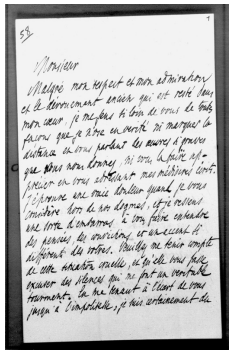 58
1
Monsieur
Malgré mon respect et mon admiration
et le dévouement ancien qui est resté dans
mon cœur, je me sens si loin de vous de toute
façons que je n'ose en vérité ni marquer la
distance en vous parlant des œuvres d'
que vous nous donnez, ni vous la faire ap-
précier en vous adressant mes médiocres écrits.
J'éprouve une vraie douleur quand je vous
considère hors de nos dogmes, et je ressens
une sorte d'embarras à vous faire entendre
des pensées, des convictions et un accent si
différent des vôtres. Veuillez me tenir compte
de cette situation cruelle, et qu'elle vous fasse
excuser des silences qui me font un véritable
tourment. En me tenant à l'écart de vous
jusqu'à l'impolitesse, je suis certainement de